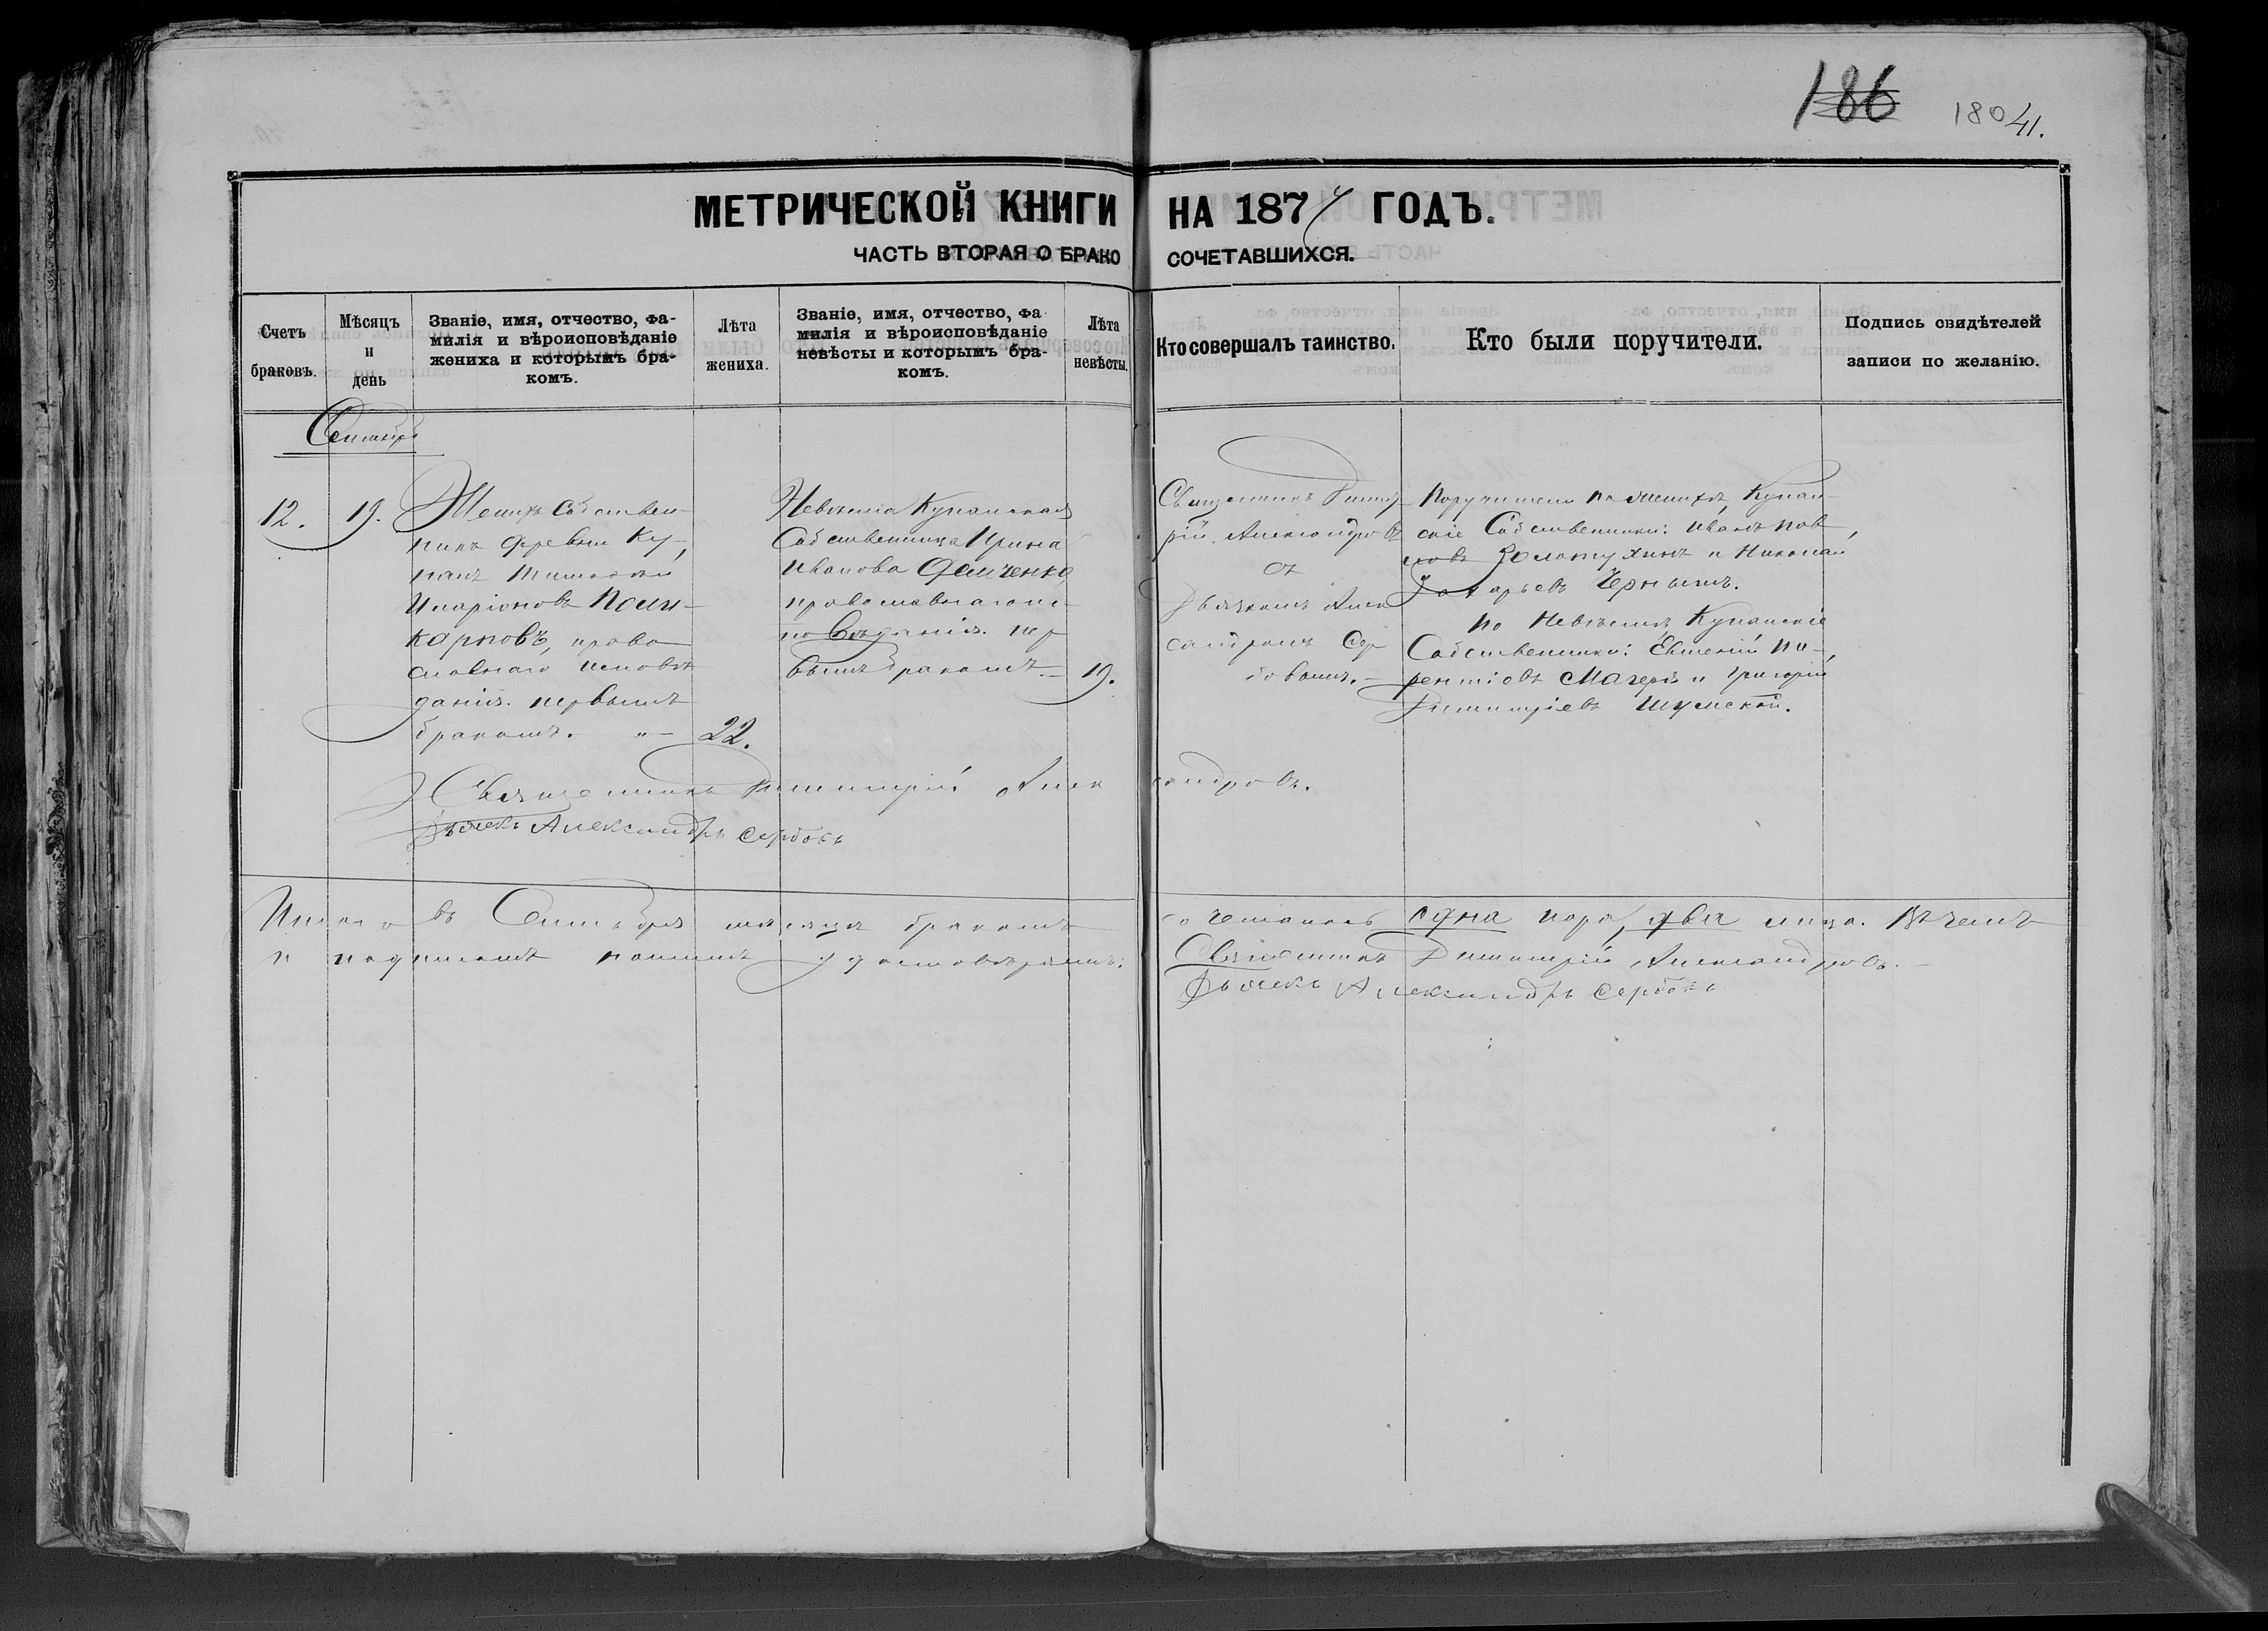 186 180 41.
МЕТРИЧЕСКОЙ КНИГИ НА 1874 ГОДЪ.
ЧАСТЬ ВТОРАЯ О БРАКО СОЧЕТАВШИХСЯ.
Счетъ
браковъ.
Мѣсяцъ
и
день
Званіе, имя, отчество, фа-
милія и вѣроисповѣданіе
жениха и которымъ бра-
комъ.
Лѣта
жениха.
Званіе, имя, отчество, фа
милія и вѣроисповѣданіе
невѣсты и которымъ бра-
комъ.
Лѣта
невѣсты.
Кто совершалъ таинство.
Кто были поручители.
Подпись свидѣтелей
записи по желанію.
Сентябрь
12.
19.
Женихъ Собствен-
никъ деревни Ку-
панъ
Иларіоновъ Поли-
карповъ, право
славнаго исповѣ
данія. первымъ
бракомъ. "—
22.
Невѣста Купанская
Собственница Ирина
Иванова Демченко,
православнаго ис-
повѣданія. пер
вымъ бракомъ.—
19.
Священникъ Димит
рій Александровъ
съ
Дьячкомъ Алек
сандромъ Сер
бовымъ.—
Поручители по женихѣ, Купан-
скіе Собственники: Иванъ Пав-
ловъ Золотухинъ и Николай
Захарьевъ Чернышъ.
По Невѣстѣ, Купанскіе
Собственники: Евгеній
Мачера и Григорій
Димитріевъ Шумской.
Священникъ Димитрій Александровъ.
Дьячекъ Александръ Сербовъ
Итого въ Сентябрѣ мѣсяцѣ бракомъ сочеталось одна пара, два лица. Въ чемъ
и подписомъ нашимъ удостовѣряемъ: Священникъ Димитрій Александровъ.—
Дьячекъ Александръ Сербовъ